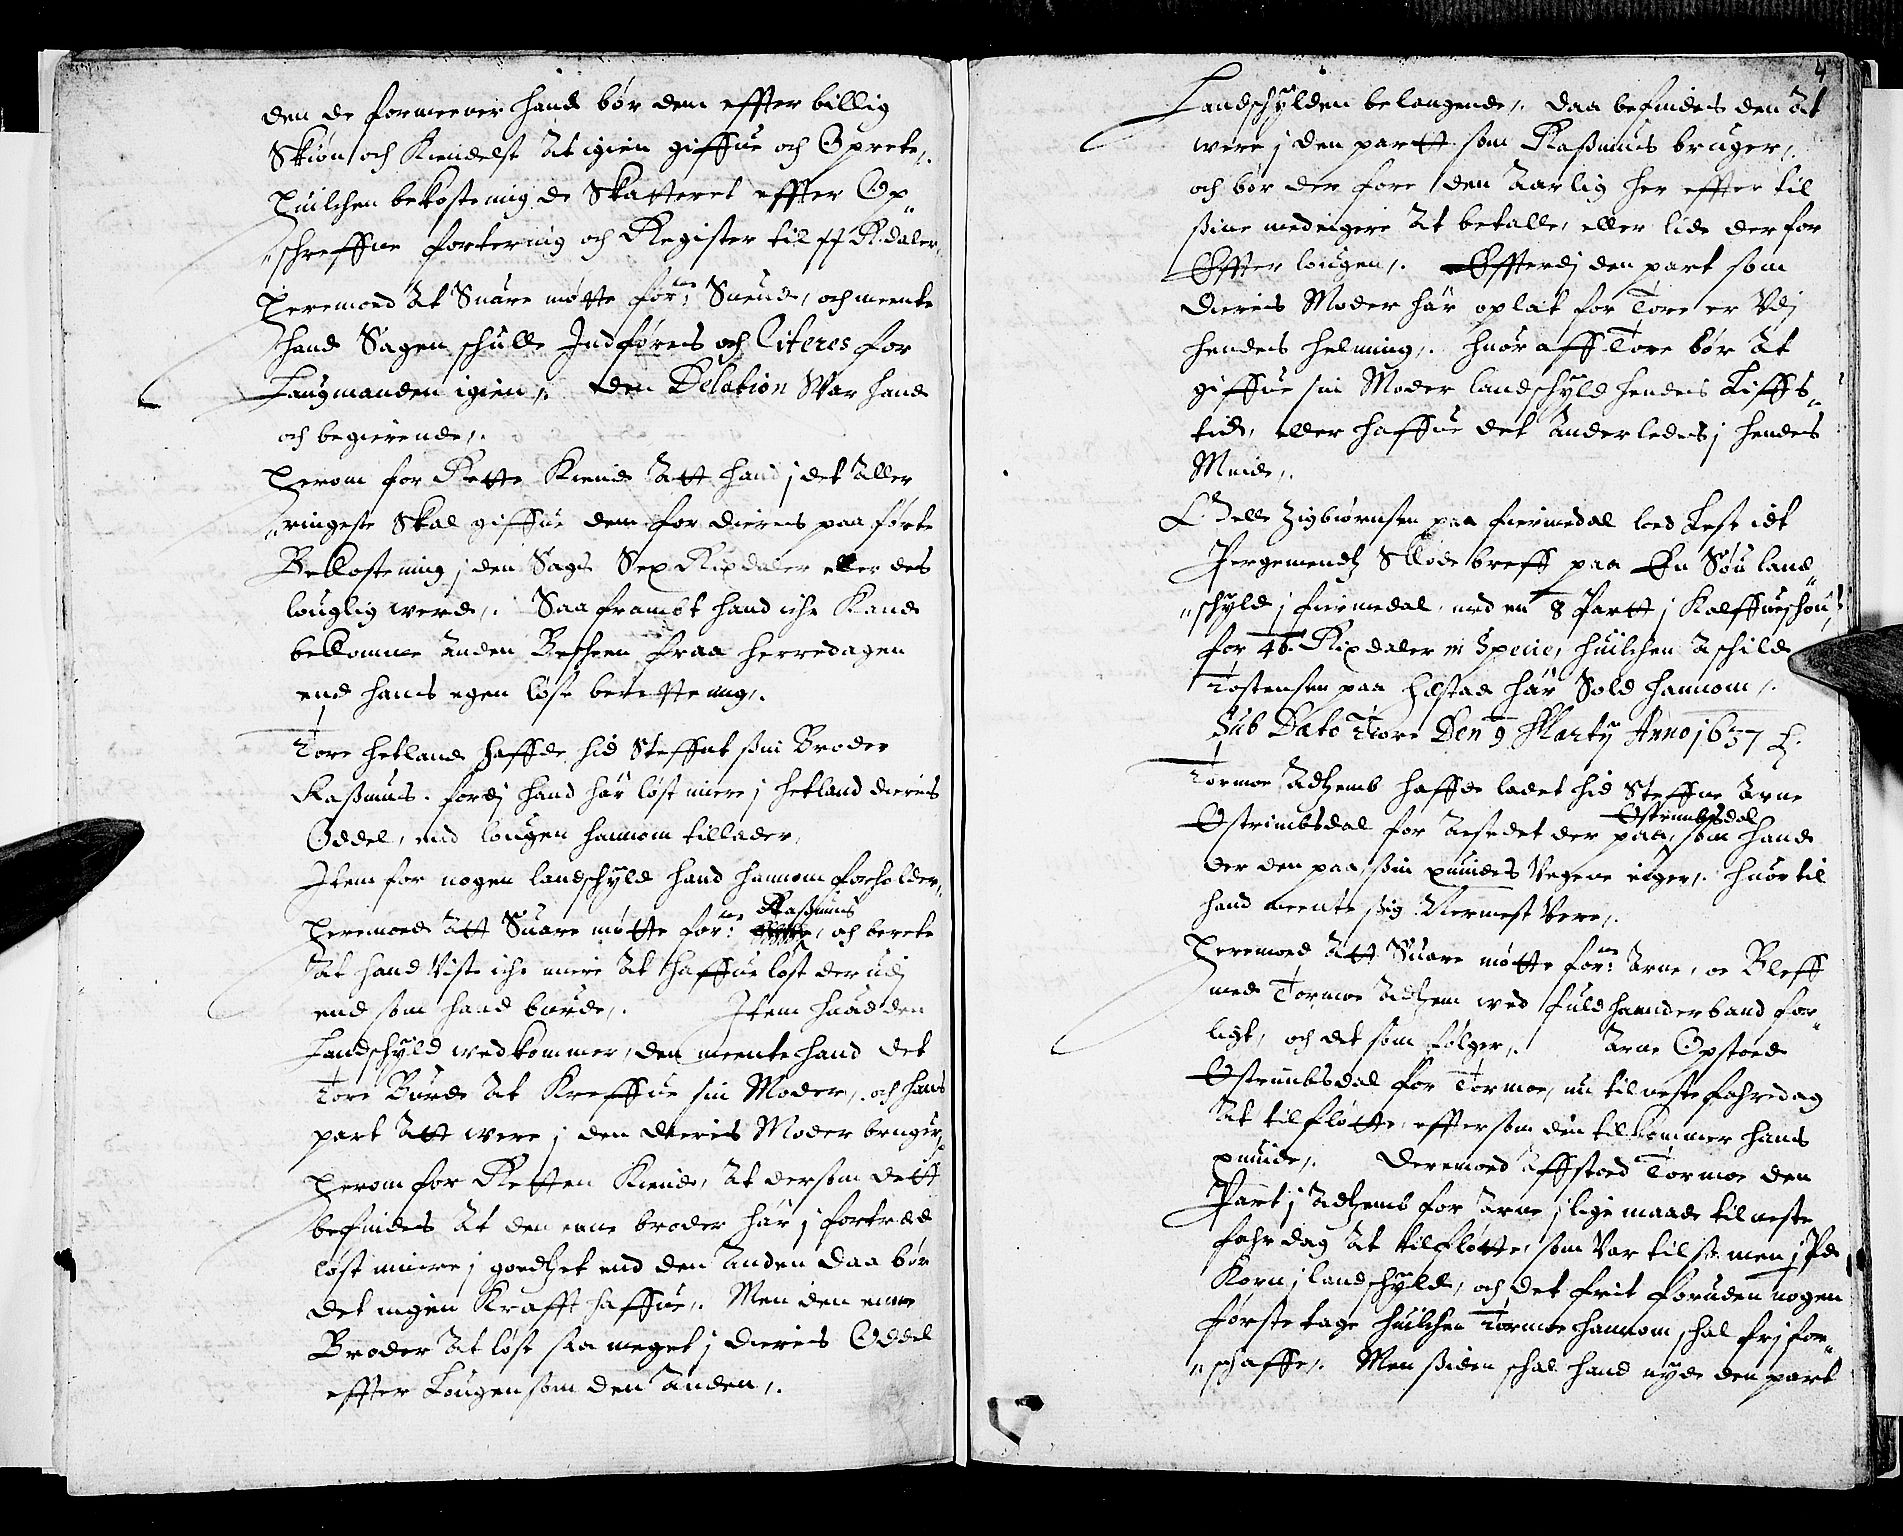 den de formeener hand bør den effter billig
Skiøn och Kiendelse at igien giffue och Oprete,.
Huilchen bekostning de Skatteret effter Op„
„schreffne fortering och Register til 11 Rdaler,
Heremoed at Suare møtte forne: Suend, och meente
hand Sagen schulle Indføris och Citeres for
Laugmanden igien,. den Delation War hand
och begierende,.
Herom for Rette Kiende att hand j det aller
„ringeste Skal giffue dem for dieris paa førte
Bekostening j den Sags Sex Rixdaler eller des
louglig werd,. Saa frambt hand iche Kand
bekomme anden Besheen fraa herredagen
end hans egen løse beretttning,.
Tore hetland haffde hid Steffnt sin Broder
Rasmus. fordj hand hàr løst meere j hetland dieris
Oddel, end lougen hannom tillader,
Item for nogen landschyld hand hannom forholder„
Heremoed att Suare møtte forne: Rasmus, och berete
at hand Viste iche mere at haffue løst der udj
end som hand burde,. Item huad den
Landschyld wedkommer, den meente hand det
Tore Burde at Kreffue sin Moder,. och hans
part att were j den dieris Moder bruger,
Herom for Retten Kiende, at dersom dett
befindes at den eene broder hàr j fortræd
løst meere j goedhet end den anden daa bør
det ingen Krafft haffue,. Men den eene
Broder at løse saa meget j dieris Oddel
effter Lougen som den anden,.
4
Landschylden belangende,. daa befindes den at
were j den partt som Rasmus bruger,.
och bør der fore den aarlig her effter til
sine medeigere at betalle, eller lide der for
Effter lougen,. Effterdj den part som
dieris Moder hàr oplat for Tore er Vdj
hendes helming,. huor aff Tore bør at
giffue sin Moder landschyld hendes Liffs„
tid, eller haffue det anderledes j hendes
Minde,.
Elle Zigbiørnsen paa fiermedal loed Lese idt
Pergemendtz Skiøde breff paa En Søu land„
„schyld j fiermedal med en 8 Partt j Kalffueschou,
for 46 Rixdaler in Specie, huilchen Aschild
Tostensen paa Helstad hàr Sold hannom,.
Sub Dato Tiore Den 9 Martij Anno 1637
Tormoe Adhemb haffde ladet hid Steffne Arne
Ostrimbsdal for Aasedet der paa Ostrimbsdal, som hand
der den paa sin quindes Vegene eiger,. huor til
hand meente sig Nermest Vere,.
Heremoed att Suare møtte forne: Arne, oc Bleff
med Tormoe Adhem wed fuld haanderband for„
ligt, och det som følger,. Arne Opstoed
Ostrimbsdal for Tormoe, nu til neste fahredag
at tilfløtte, effter som den tilkommer hans
quinde,. deremoed affstoed Tormoe den
Part j Adhemb for Arne j lige maade til neste
fahrdag at tilfløtte, som Var til sammen j Pd
Korn j landschyld, och det frit foruden nogen
første tage huilchen Tormoe hannom schal frj for„
„schaffe,. Men siden schal hand nyde den part